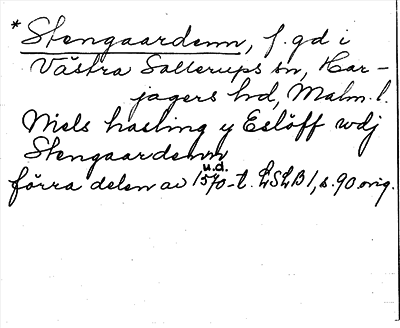 * Stengaardenn, f. gd i
Västra Sallerups sn, Har-
jagers hd, Malm. l.
Niels hasting y Eslöff wdj
Stengaardenn
u.d.
förra delen av 1570-t. LSLB 1, s. 90 orig.